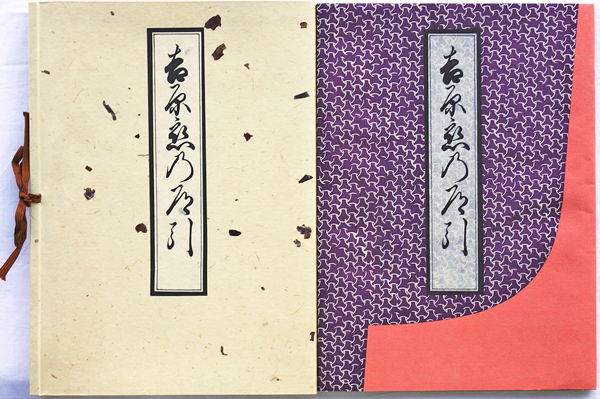 吉原恋乃道引
吉原恋乃道引